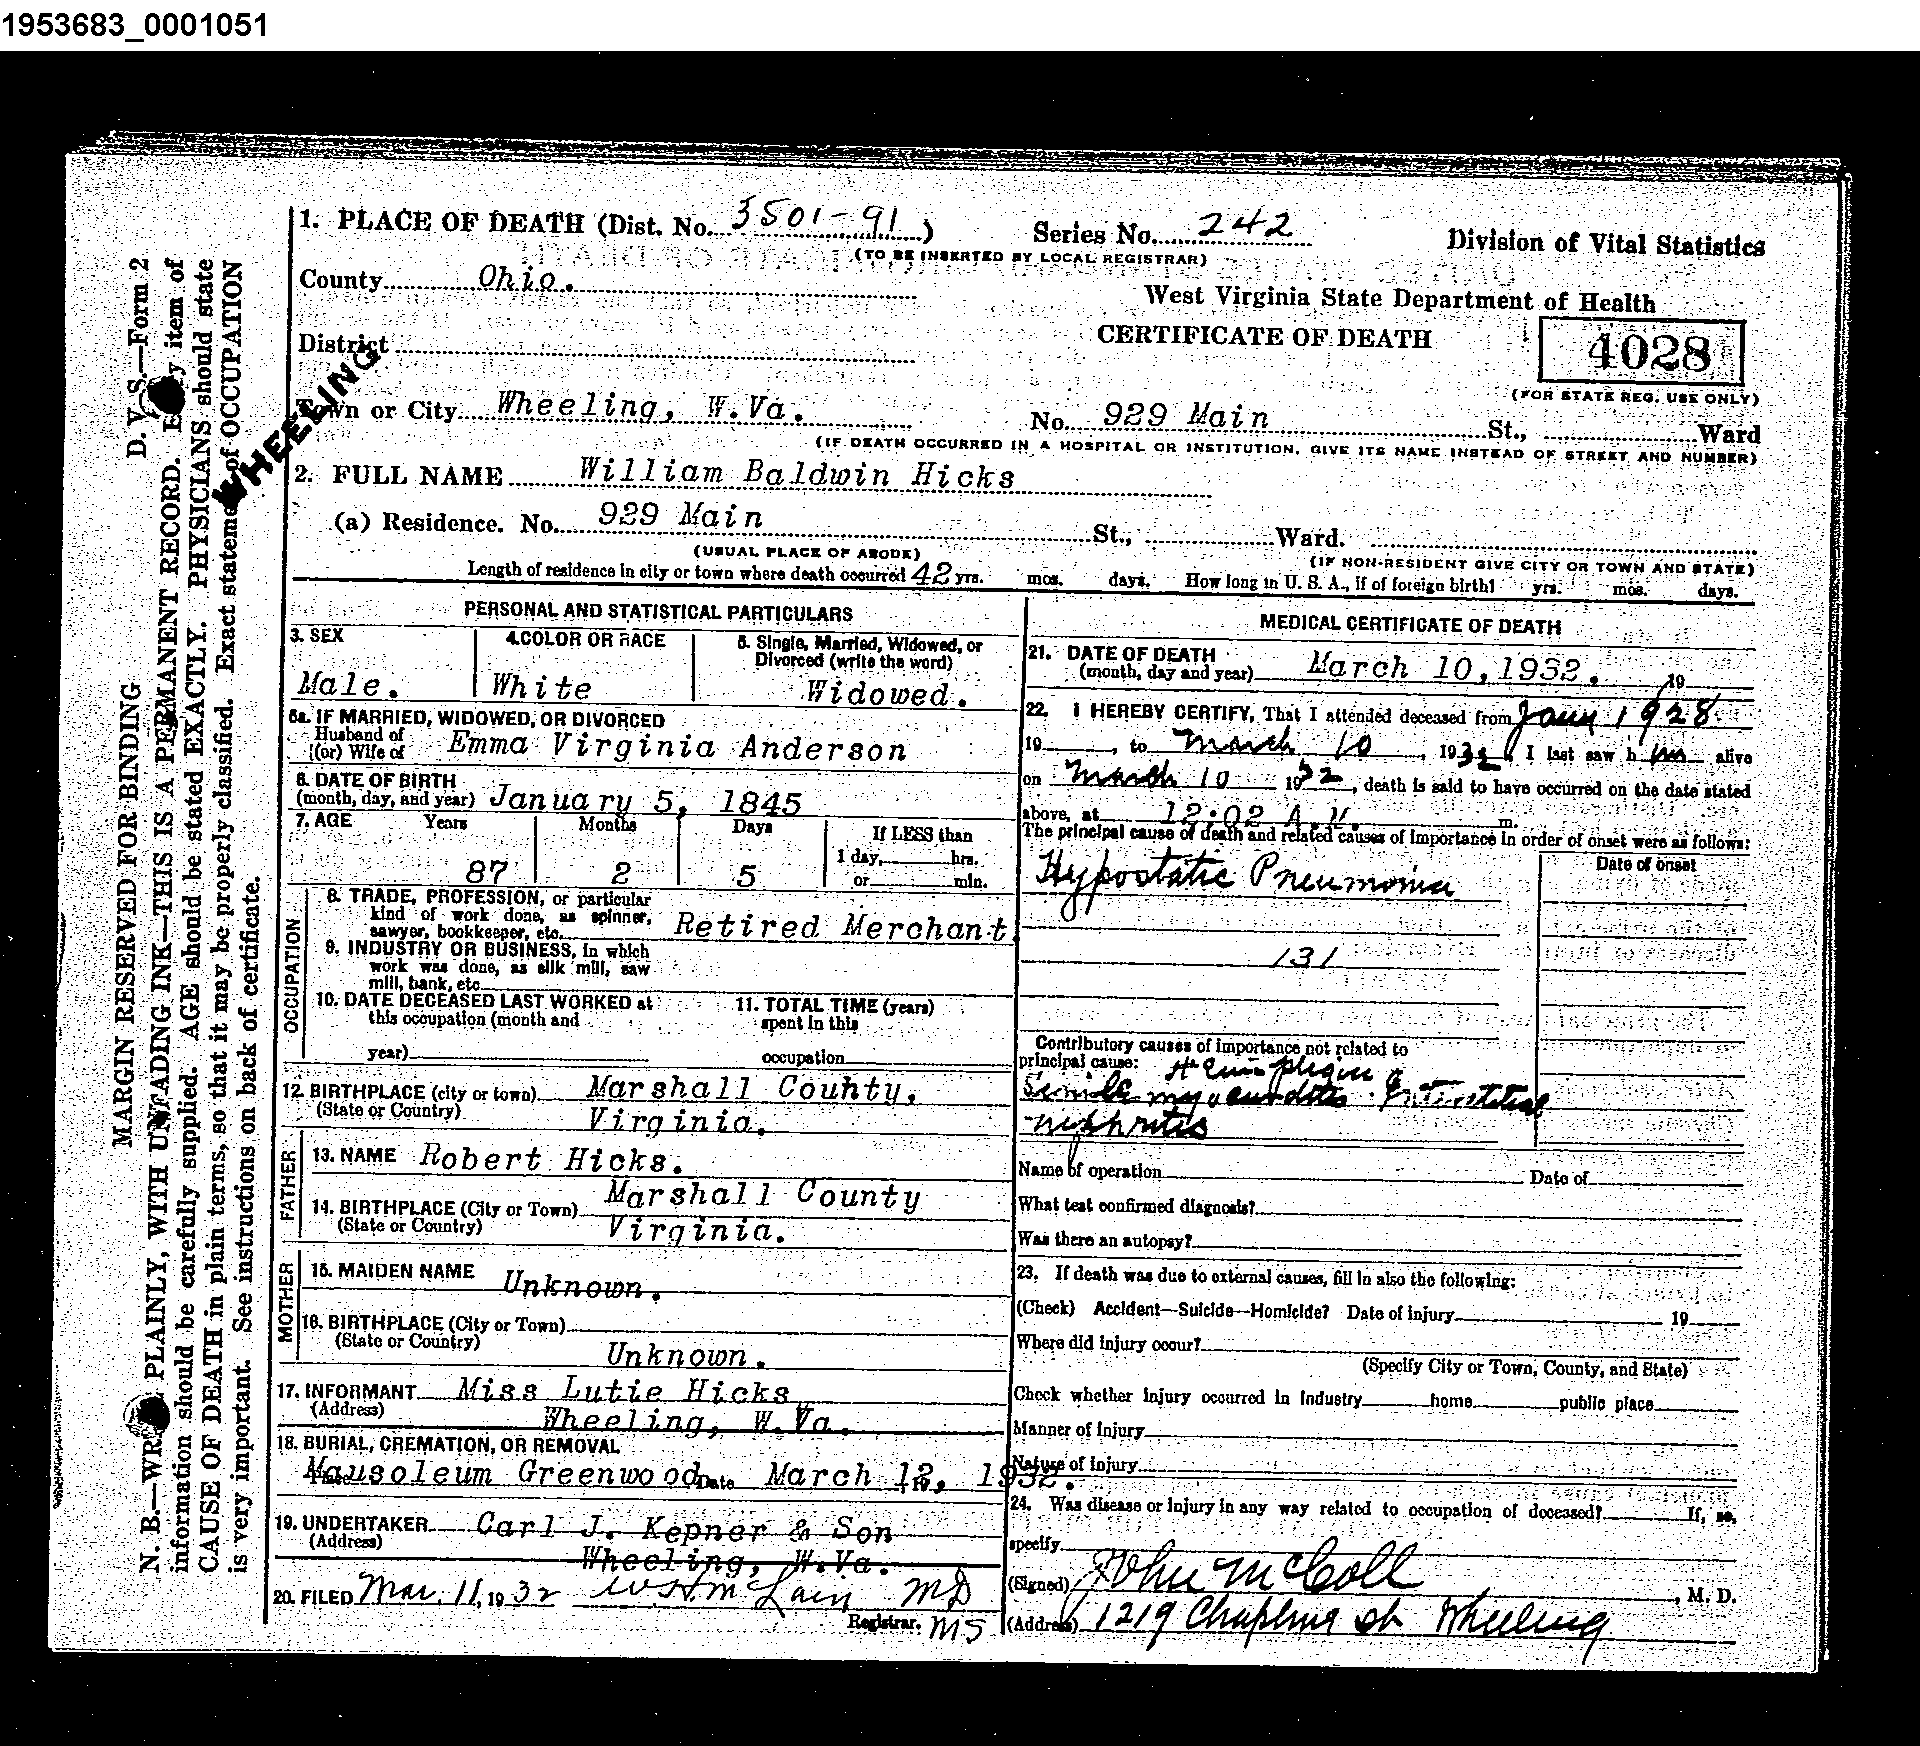 1953683_0001051
1. PLACE OF DEATH (Dist. No. 3501-91) Series No. 242 Division of Vital Statistics
(TO BE INSERTED BY LOCAL REGISTRAR)
County Ohio. West Virginia State Department of Health
District CERTIFICATE OF DEATH 4028
(FOR STATE REG. USE ONLY)
WHEELING
Town or City Wheeling, W.Va. No. 929 Main St., Ward
(IF DEATH OCCURRED IN A HOSPITAL OR INSTITUTION, GIVE ITS NAME INSTEAD OF STREET AND NUMBER)
2. FULL NAME William Baldwin Hicks
(a) Residence. No. 929 Main St., Ward.
(USUAL PLACE OF ABODE) (IF NON-RESIDENT GIVE CITY OR TOWN AND STATE)
Length of residence in city or town where death occurred 42 yrs. mos. days. How long in U. S. A., if of foreign birth? yrs. mos. days.
PERSONAL AND STATISTICAL PARTICULARS
3. SEX 4. COLOR OR RACE 5. Single, Married, Widowed, or
Divorced (write the word)
Male. White Widowed.
5a. IF MARRIED, WIDOWED, OR DIVORCED
Husband of
(or) Wife of Emma Virginia Anderson
6. DATE OF BIRTH
(month, day, and year) January 5, 1845
7. AGE Years Months Days If LESS than
1 day, hrs.
87 2 5 or min.
OCCUPATION
8. TRADE, PROFESSION, or particular
kind of work done, as spinner,
sawyer, bookkeeper, etc. Retired Merchant
9. INDUSTRY OR BUSINESS, in which
work was done, as silk mill, saw
mill, bank, etc.
10. DATE DECEASED LAST WORKED at 11. TOTAL TIME (years)
this occupation (month and spent in this
year) occupation
12. BIRTHPLACE (city or town) Marshall County,
(State or Country) Virginia.
FATHER
13. NAME Robert Hicks.
14. BIRTHPLACE (City or Town) Marshall County
(State or Country) Virginia.
MOTHER
15. MAIDEN NAME Unknown.
16. BIRTHPLACE (City or Town)
(State or Country) Unknown.
17. INFORMANT Miss Lutie Hicks
(Address) Wheeling, W.Va.
18. BURIAL, CREMATION, OR REMOVAL
Mausoleum Greenwood Date March 12, 1932.
19. UNDERTAKER Carl J. Kepner & Son
(Address) Wheeling, W.Va.
20. FILED Mar. 11, 1932 W.H. McLain MD
Registrar. MS
MEDICAL CERTIFICATE OF DEATH
21. DATE OF DEATH
(month, day and year) March 10, 1932. 19
22. I HEREBY CERTIFY, That I attended deceased from Jany 1928
19 , to March 10, 1932, I last saw him alive
on March 10 1932, death is said to have occurred on the date stated
above, at 12:02 A.M. m.
The principal cause of death and related causes of importance in order of onset were as follows:
Date of onset
Hypostatic Pneumonia
131
Contributory causes of importance not related to
principal cause: Hemiplegia
Senile myocarditis Interstitial
nephritis
Name of operation Date of
What test confirmed diagnosis?
Was there an autopsy?
23. If death was due to external causes, fill in also the following:
(Check) Accident—Suicide—Homicide? Date of injury 19
Where did injury occur?
(Specify City or Town, County, and State)
Check whether injury occurred in industry home public place
Manner of injury
Nature of injury
24. Was disease or injury in any way related to occupation of deceased? If, so,
specify
(Signed) John McColl, M. D.
(Address) 1219 Chapline st Wheeling
MARGIN RESERVED FOR BINDING D. V. S.—Form 2
N. B.—WRITE PLAINLY, WITH UNFADING INK—THIS IS A PERMANENT RECORD. Every item of
information should be carefully supplied. AGE should be stated EXACTLY. PHYSICIANS should state
CAUSE OF DEATH in plain terms, so that it may be properly classified. Exact statement of OCCUPATION
is very important. See instructions on back of certificate.